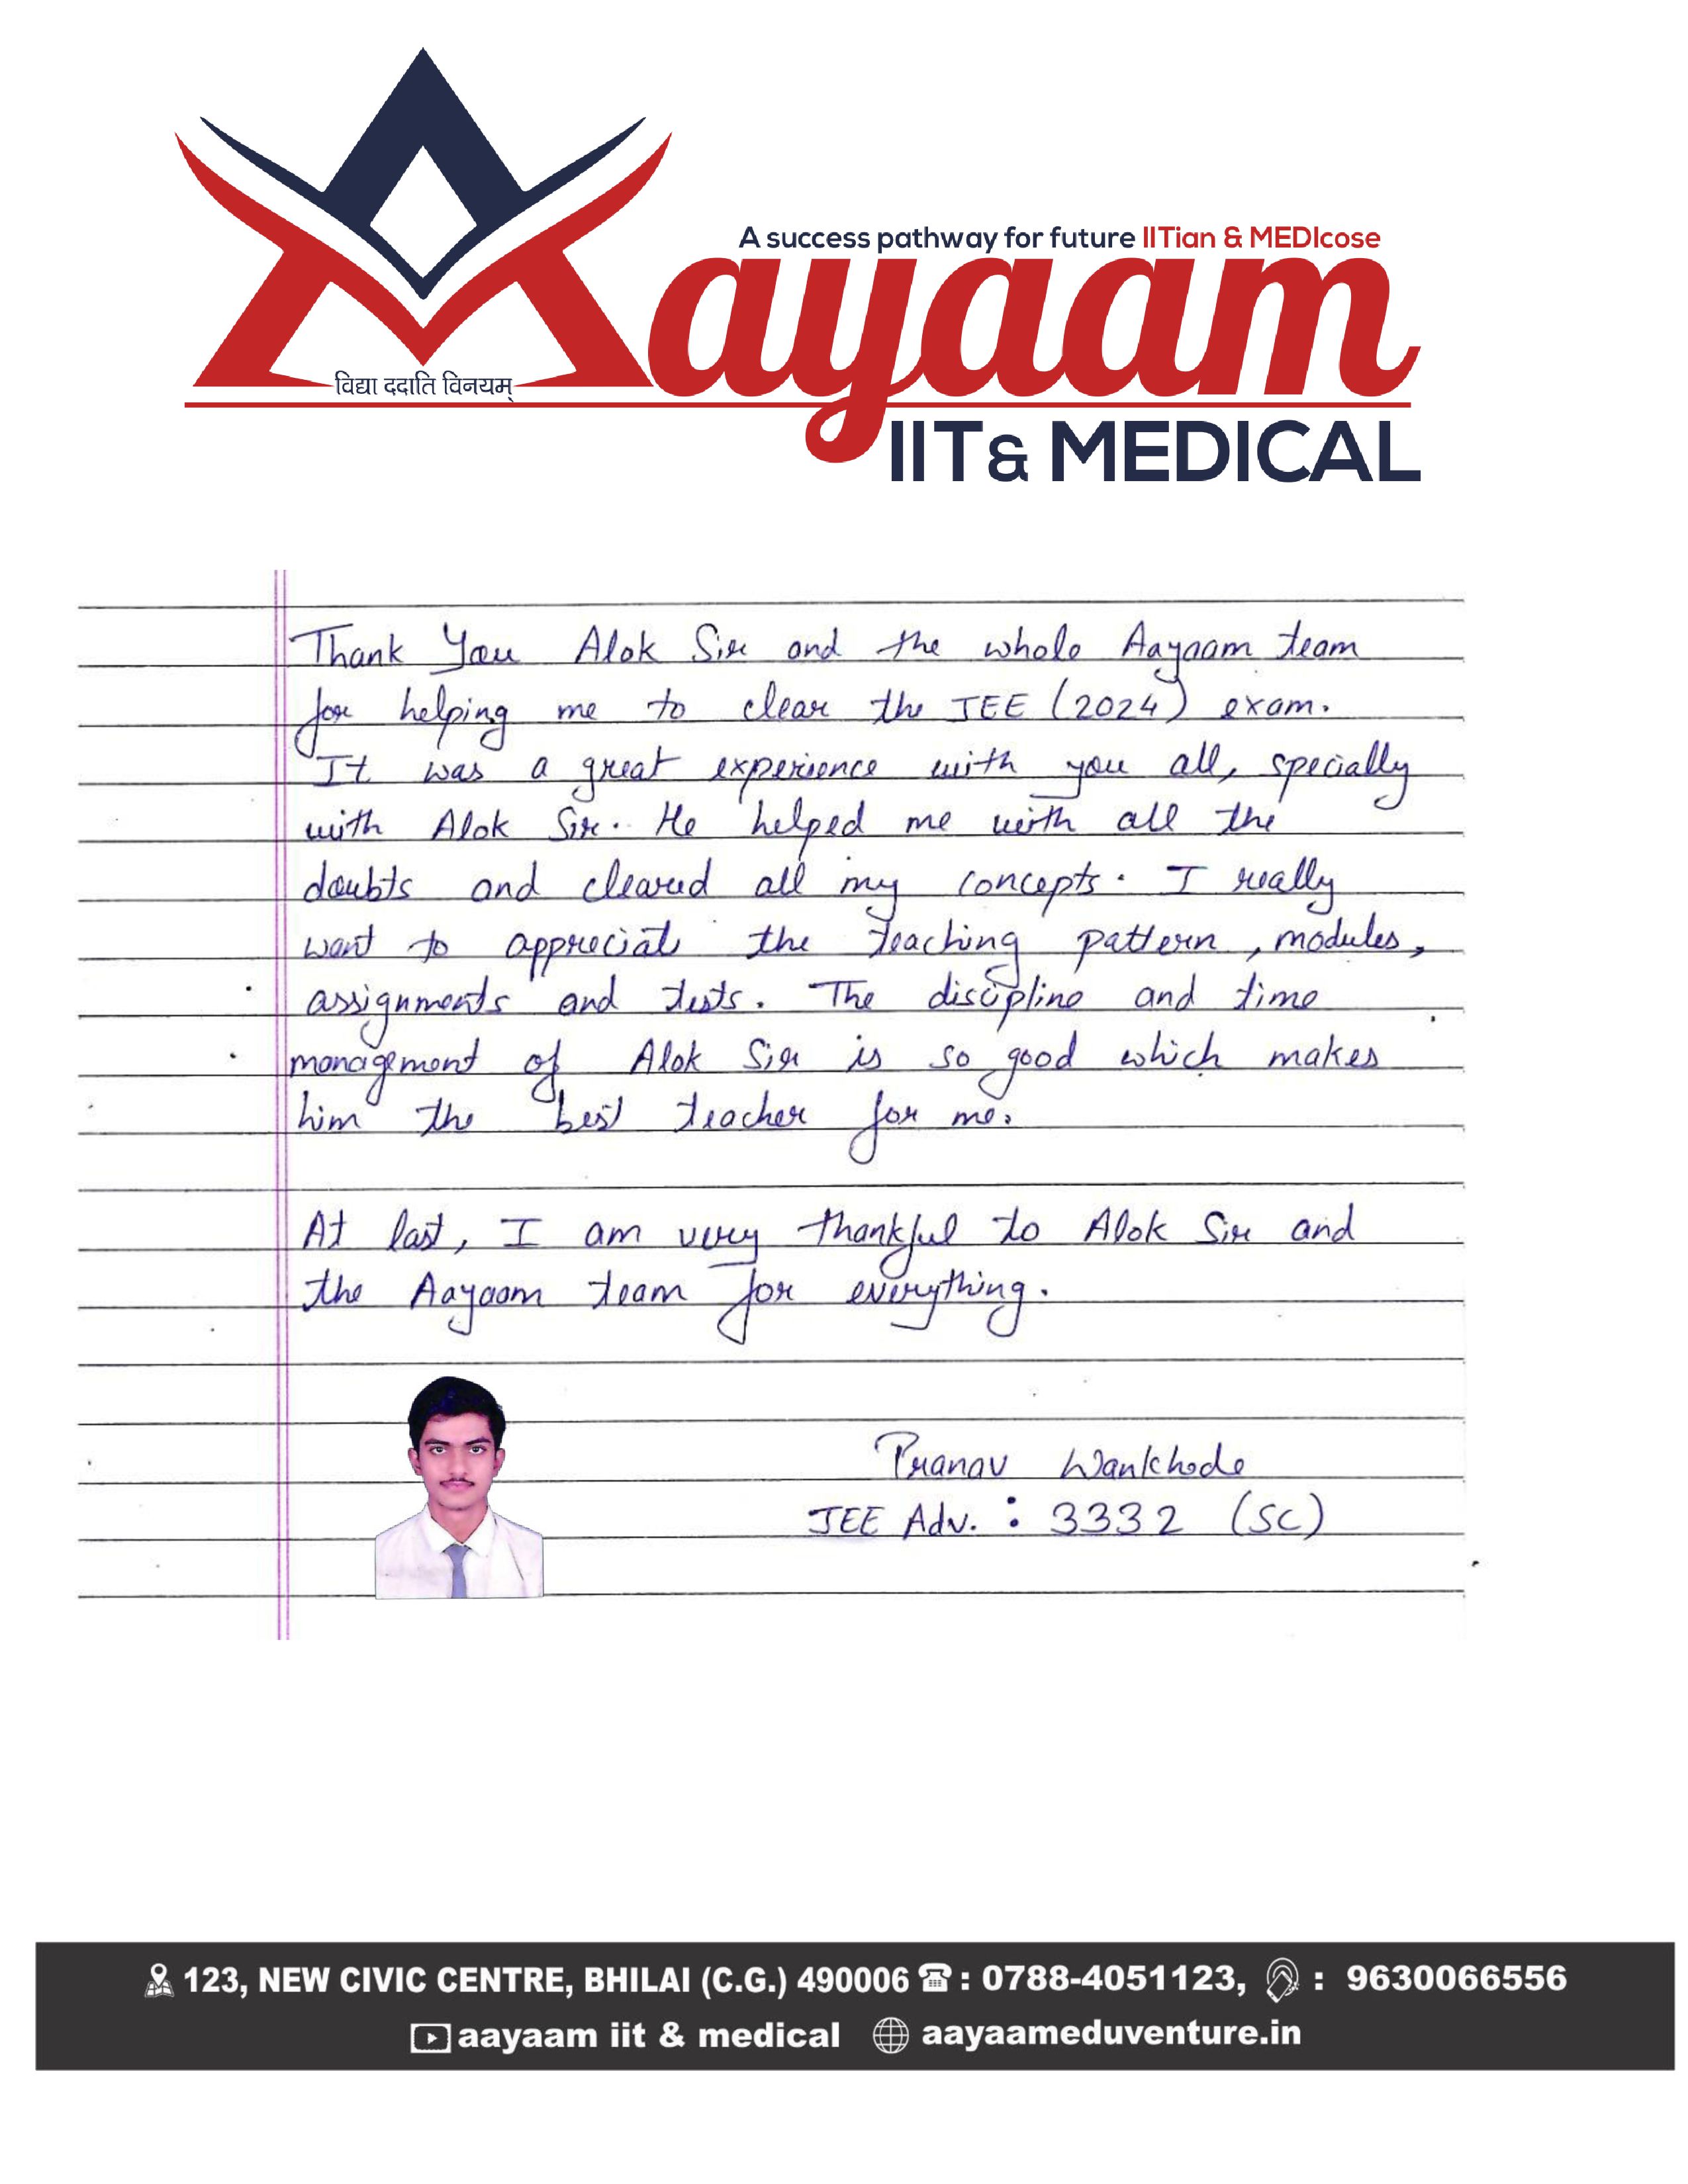 A success pathway for future IITian & MEDIcose
Aayaam
विद्या ददाति विनयम्
IIT & MEDICAL
Thank You Alok Sir and the whole Aayaam team
for helping me to clear the JEE (2024) exam.
It was a great experience with you all, specially
with Alok Sir. He helped me with all the
doubts and cleared all my concepts. I really
want to appreciate the teaching pattern, modules,
assignments and tests. The discipline and time
management of Alok Sir is so good which makes
him the best teacher for me.
At last, I am very thankful to Alok Sir and
the Aayaam team for everything.
Pranav Wankhede
JEE Adv. : 3332 (SC)
123, NEW CIVIC CENTRE, BHILAI (C.G.) 490006 : 0788-4051123, : 9630066556
aayaam iit & medical aayaameduventure.in